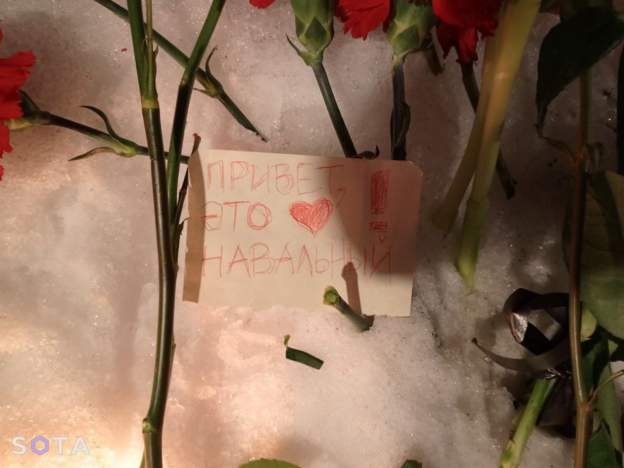 ПРИВЕТ,
ЭТО ❤ !
НАВАЛЬНЫЙ
SOTA